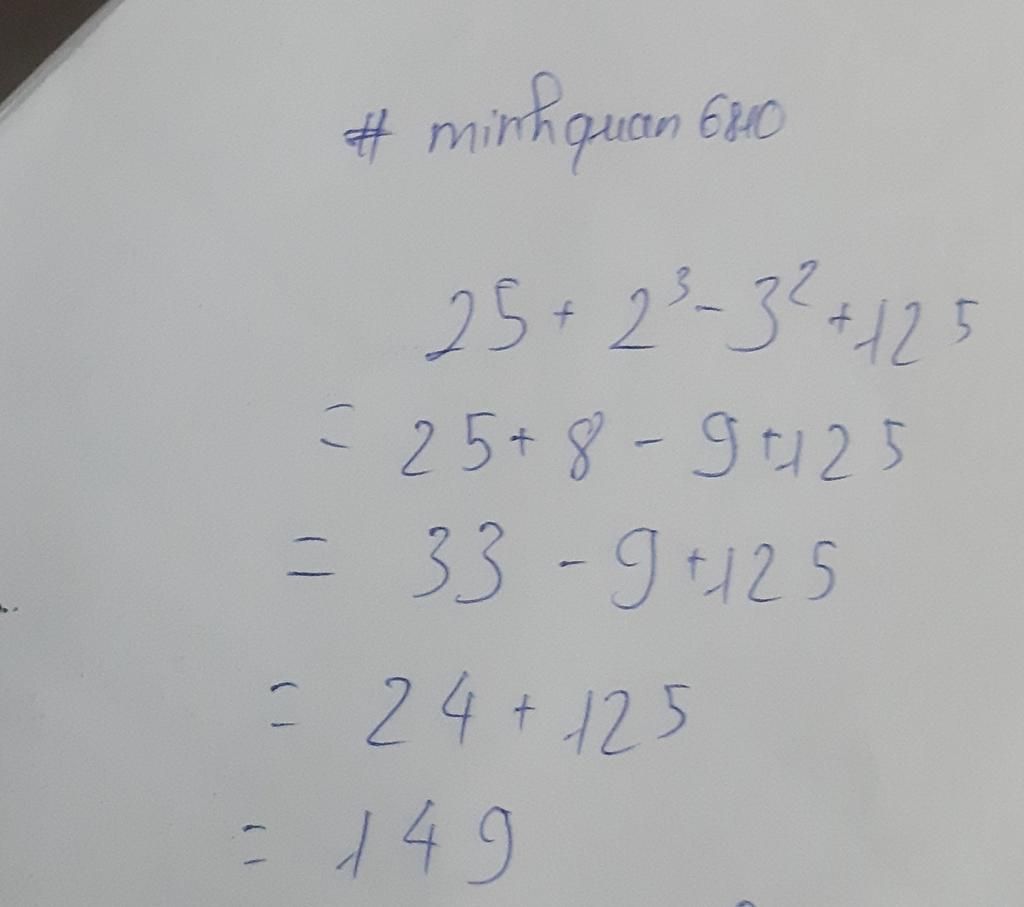 # minhquan6810
25 + 2³ - 3² + 125
= 25 + 8 - 9 + 125
= 33 - 9 + 125
= 24 + 125
= 149